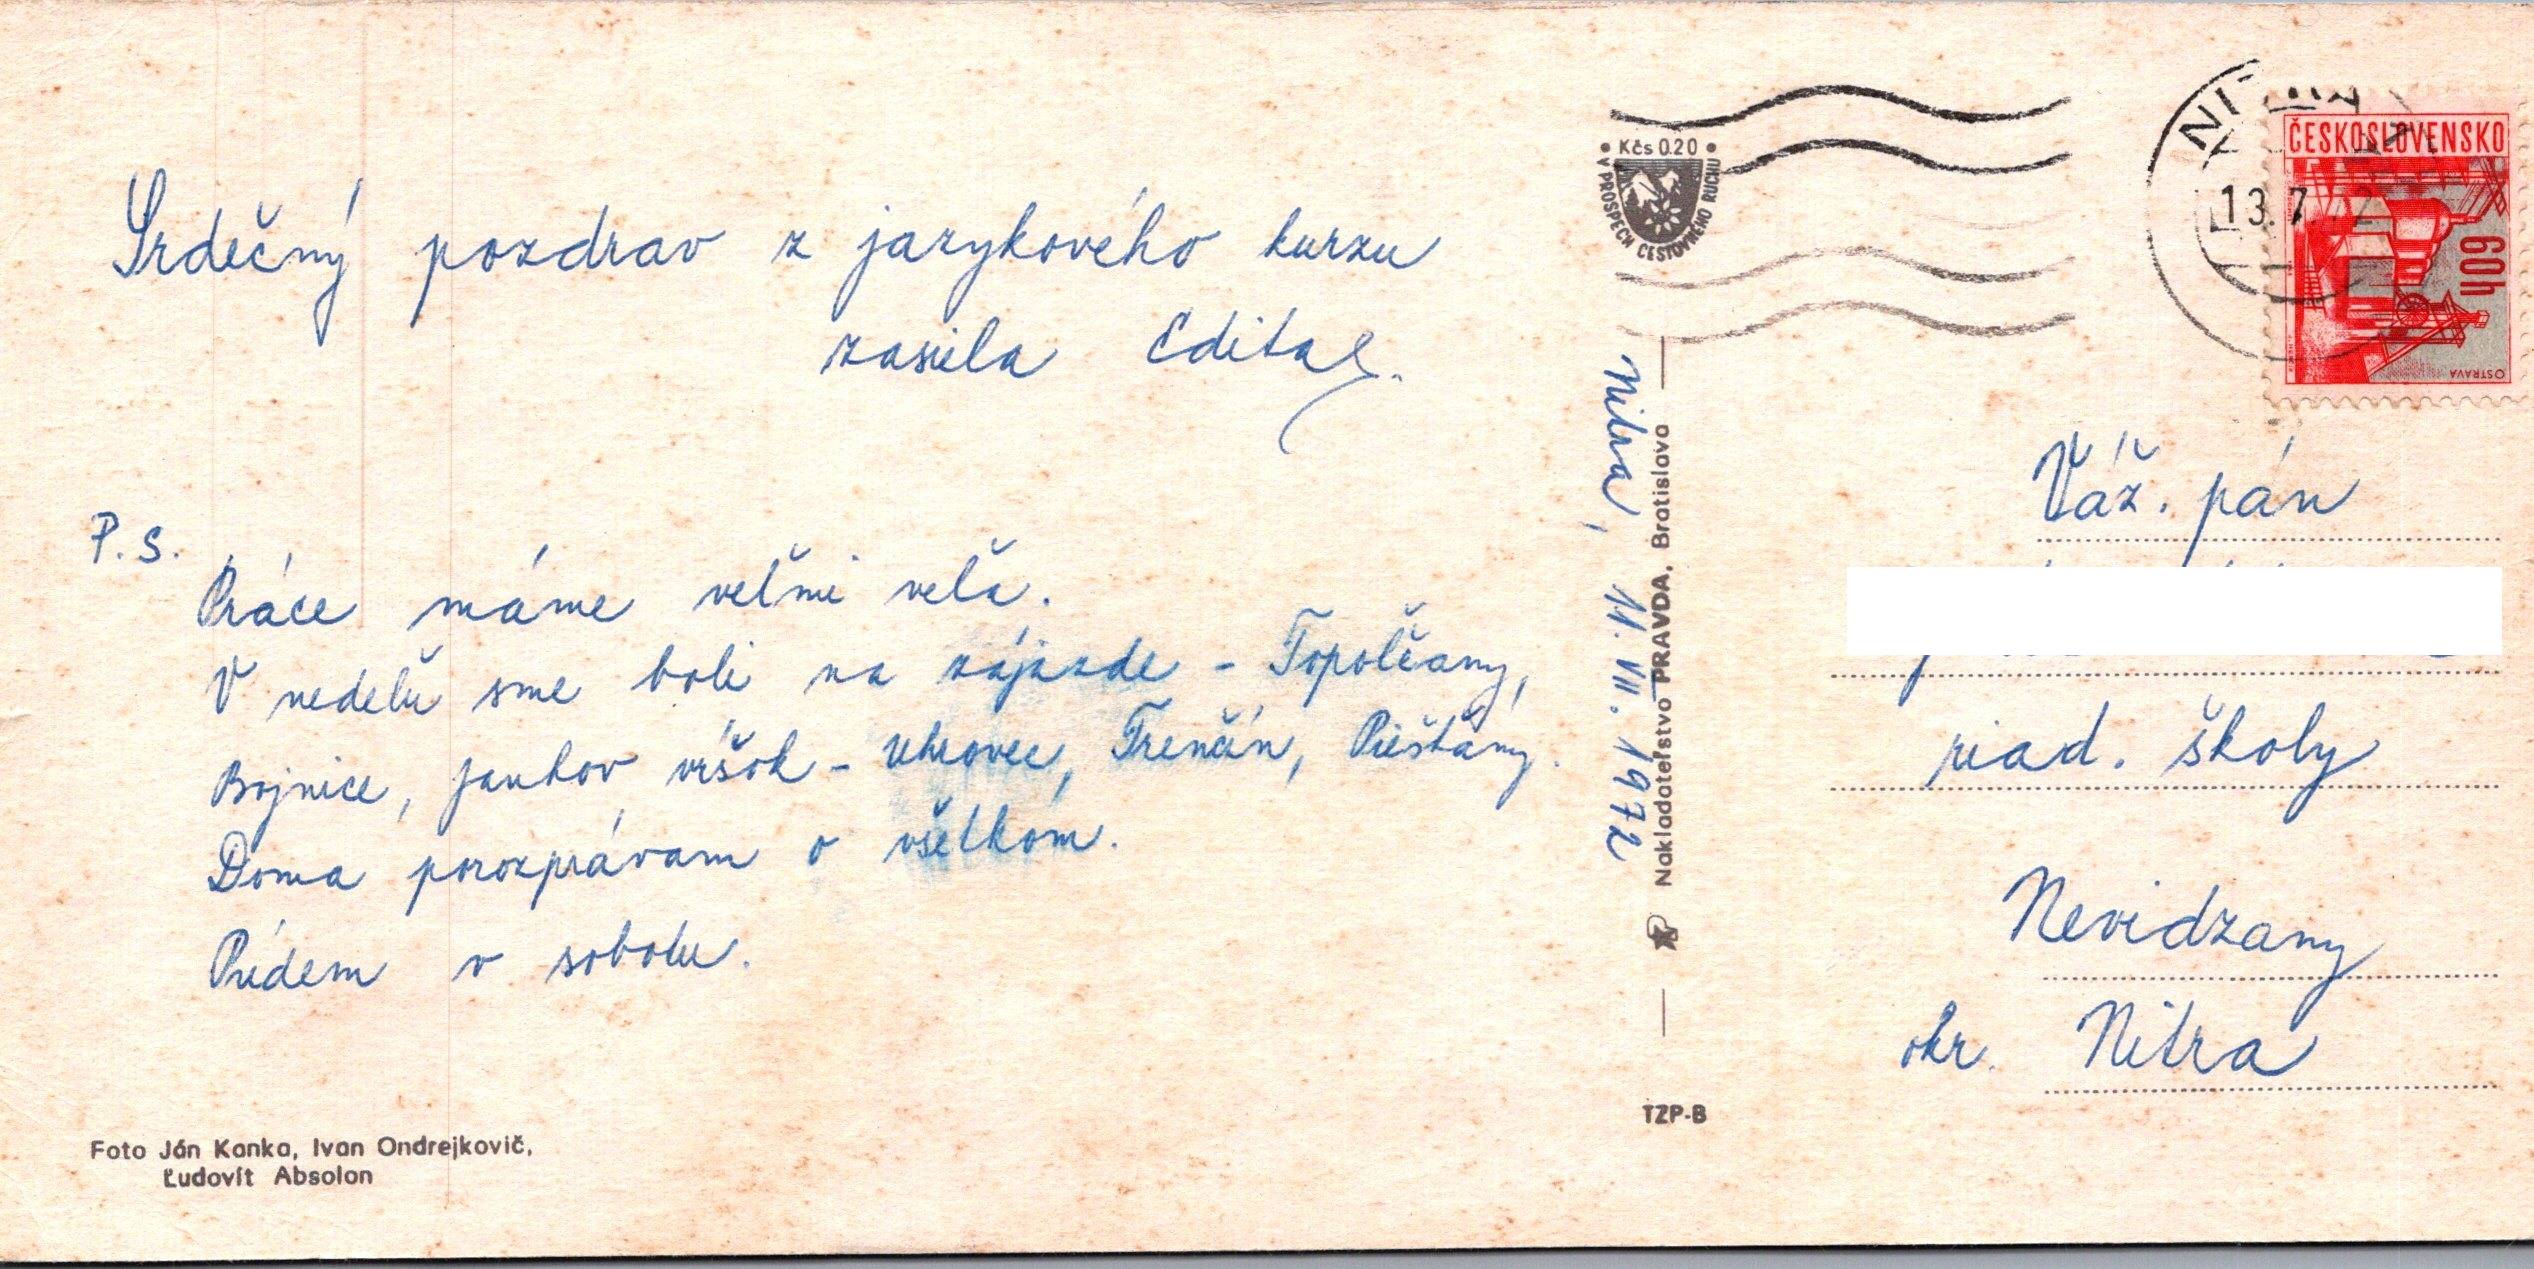 Srdečný pozdrav z jazykového kurzu
zasiela Edita.
P.S.
Práce máme veľmi veľa.
V nedeľu sme boli na zájazde - Topoľčany,
Bojnice, Jankov vŕšok - Uhrovec, Trenčín, Piešťany.
Doma porozprávam o všetkom.
Prídem v sobotu.
Foto Ján Kanka, Ivan Ondrejkovič,
Ľudovít Absolon
Nitra, 11. VII. 1972
Nakladateľstvo PRAVDA, Bratislava
TZP-B
• Kčs 0.20 •
V PROSPECH CESTOVNÉHO RUCHU
13.7
ČESKOSLOVENSKO
60h
OSTRAVA
Váž. pán
riad. školy
Nevidzany
okr. Nitra